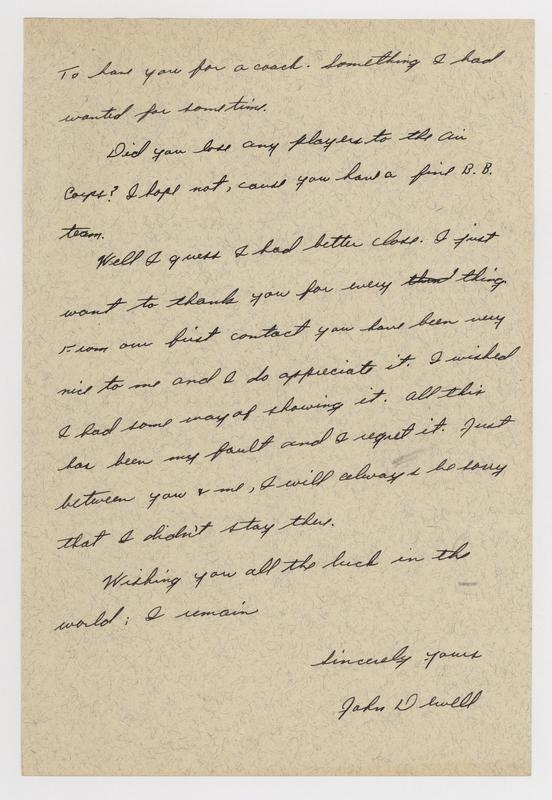 To have you for a coach. Something I had
wanted for sometime.
Did you lose any players to the air
Corps? I hope not, cause you have a fine B.B.
team.
Well I guess I had better close. I just
want to thank you for every thing
From our first contact you have been very
nice to me and I do appreciate it. I wished
I had some way of showing it. All this
has been my fault and I regret it. Just
between you & me, I will always be sorry
that I didn't stay there.
Wishing you all the luck in the
world; I remain
Sincerely yours
John Dewell